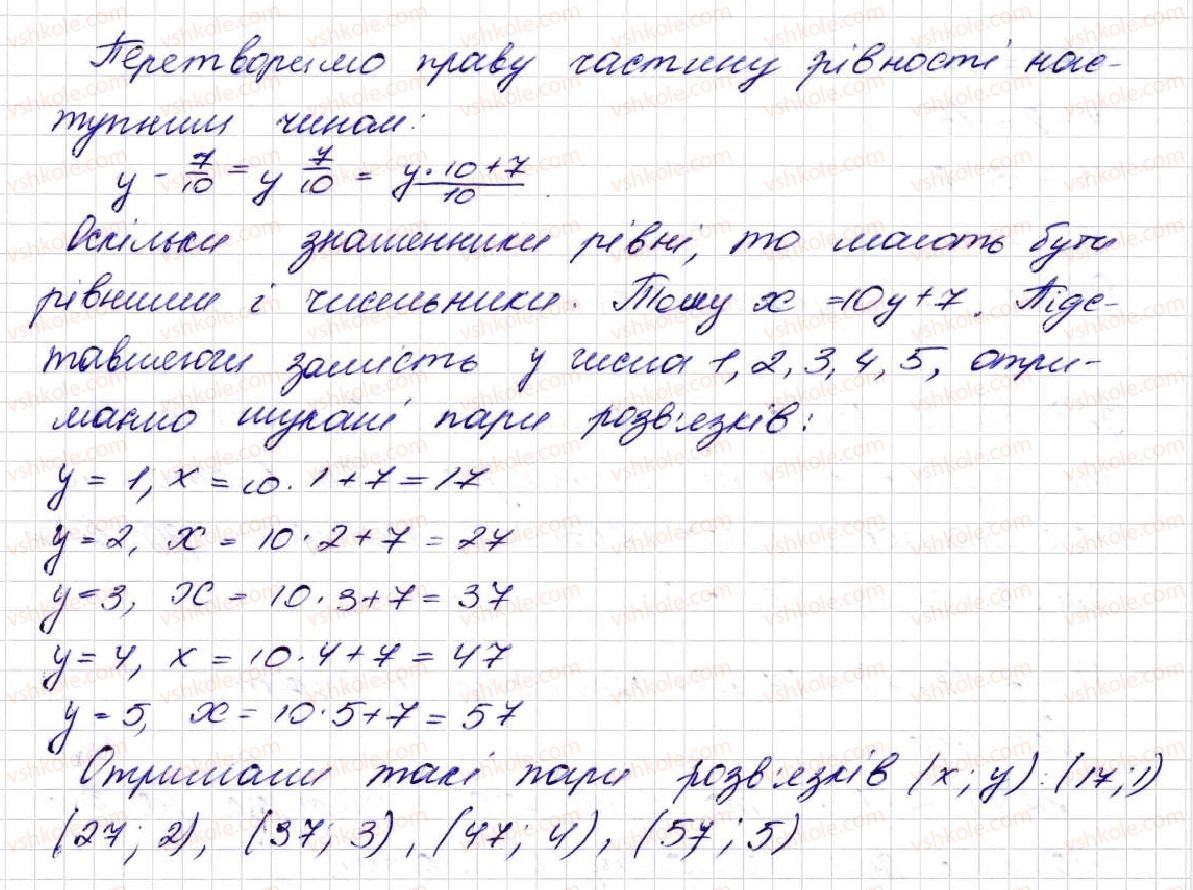 Перетворимо праву частину рівності нас-
тупним чином:
y - 7/10 = y 7/10 = y·10+7/10
Оскільки знаменники рівні, то мають бути
рівними і чисельники. Тому x =10y+7. Підс-
тавляючи замість y числа 1, 2, 3, 4, 5, отри-
маємо шукані пари розв'язків:
y = 1, x = 10·1+7=17
y=2, x = 10·2+7=27
y=3, x = 10·3+7=37
y=4, x = 10·4+7=47
y=5, x=10·5+7=57
Отримали такі пари розв'язків (x; y): (17;1)
(27; 2), (37; 3), (47; 4), (57; 5)
vshkole.com